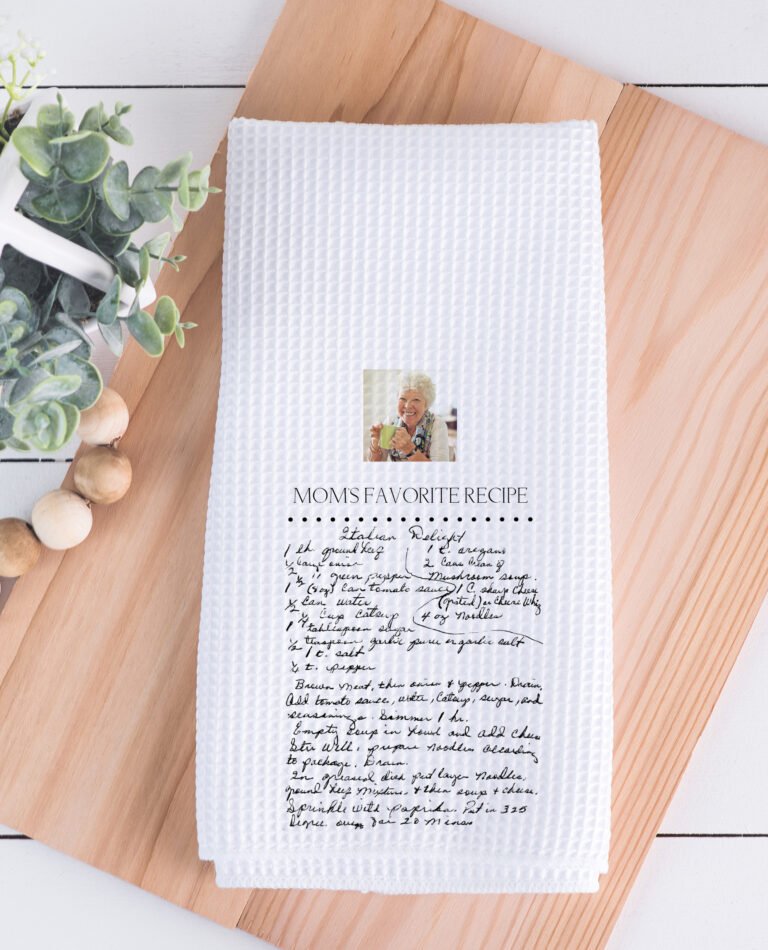 MOM'S FAVORITE RECIPE
Italian Delight
1 lb ground beef
½ large onion
½ " green pepper
1 (8oz) Can tomato sauce
½ Can water
¼ Cup Catsup
1 tablespoon sugar
½ teaspoon garlic puree or garlic salt
1 t. salt
½ t. pepper
1 t. oregano
2 Cans Cream of
Mushroom soup.
1 C. sharp Cheese
(grated) or Cheese Whiz
4 oz Noodles
Brown Meat, then onion & pepper. Drain.
Add tomato sauce, water, Catsup, sugar, and
seasonings. Simmer 1 hr.
Empty Soup in bowl and add Cheese
Stir Well, prepare Noodles according
to package. Drain.
In greased dish put layer Noodles,
ground beef Mixture, & then soup & cheese.
Sprinkle with paprika. Put in 325
Degree oven for 20 Mins